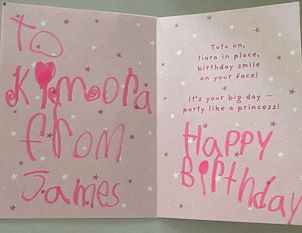 To
Kimora
from
James
Tutu on,
tiara in place,
birthday smile
on your face!
It's your big day —
party like a princess!
Happy
Birthday